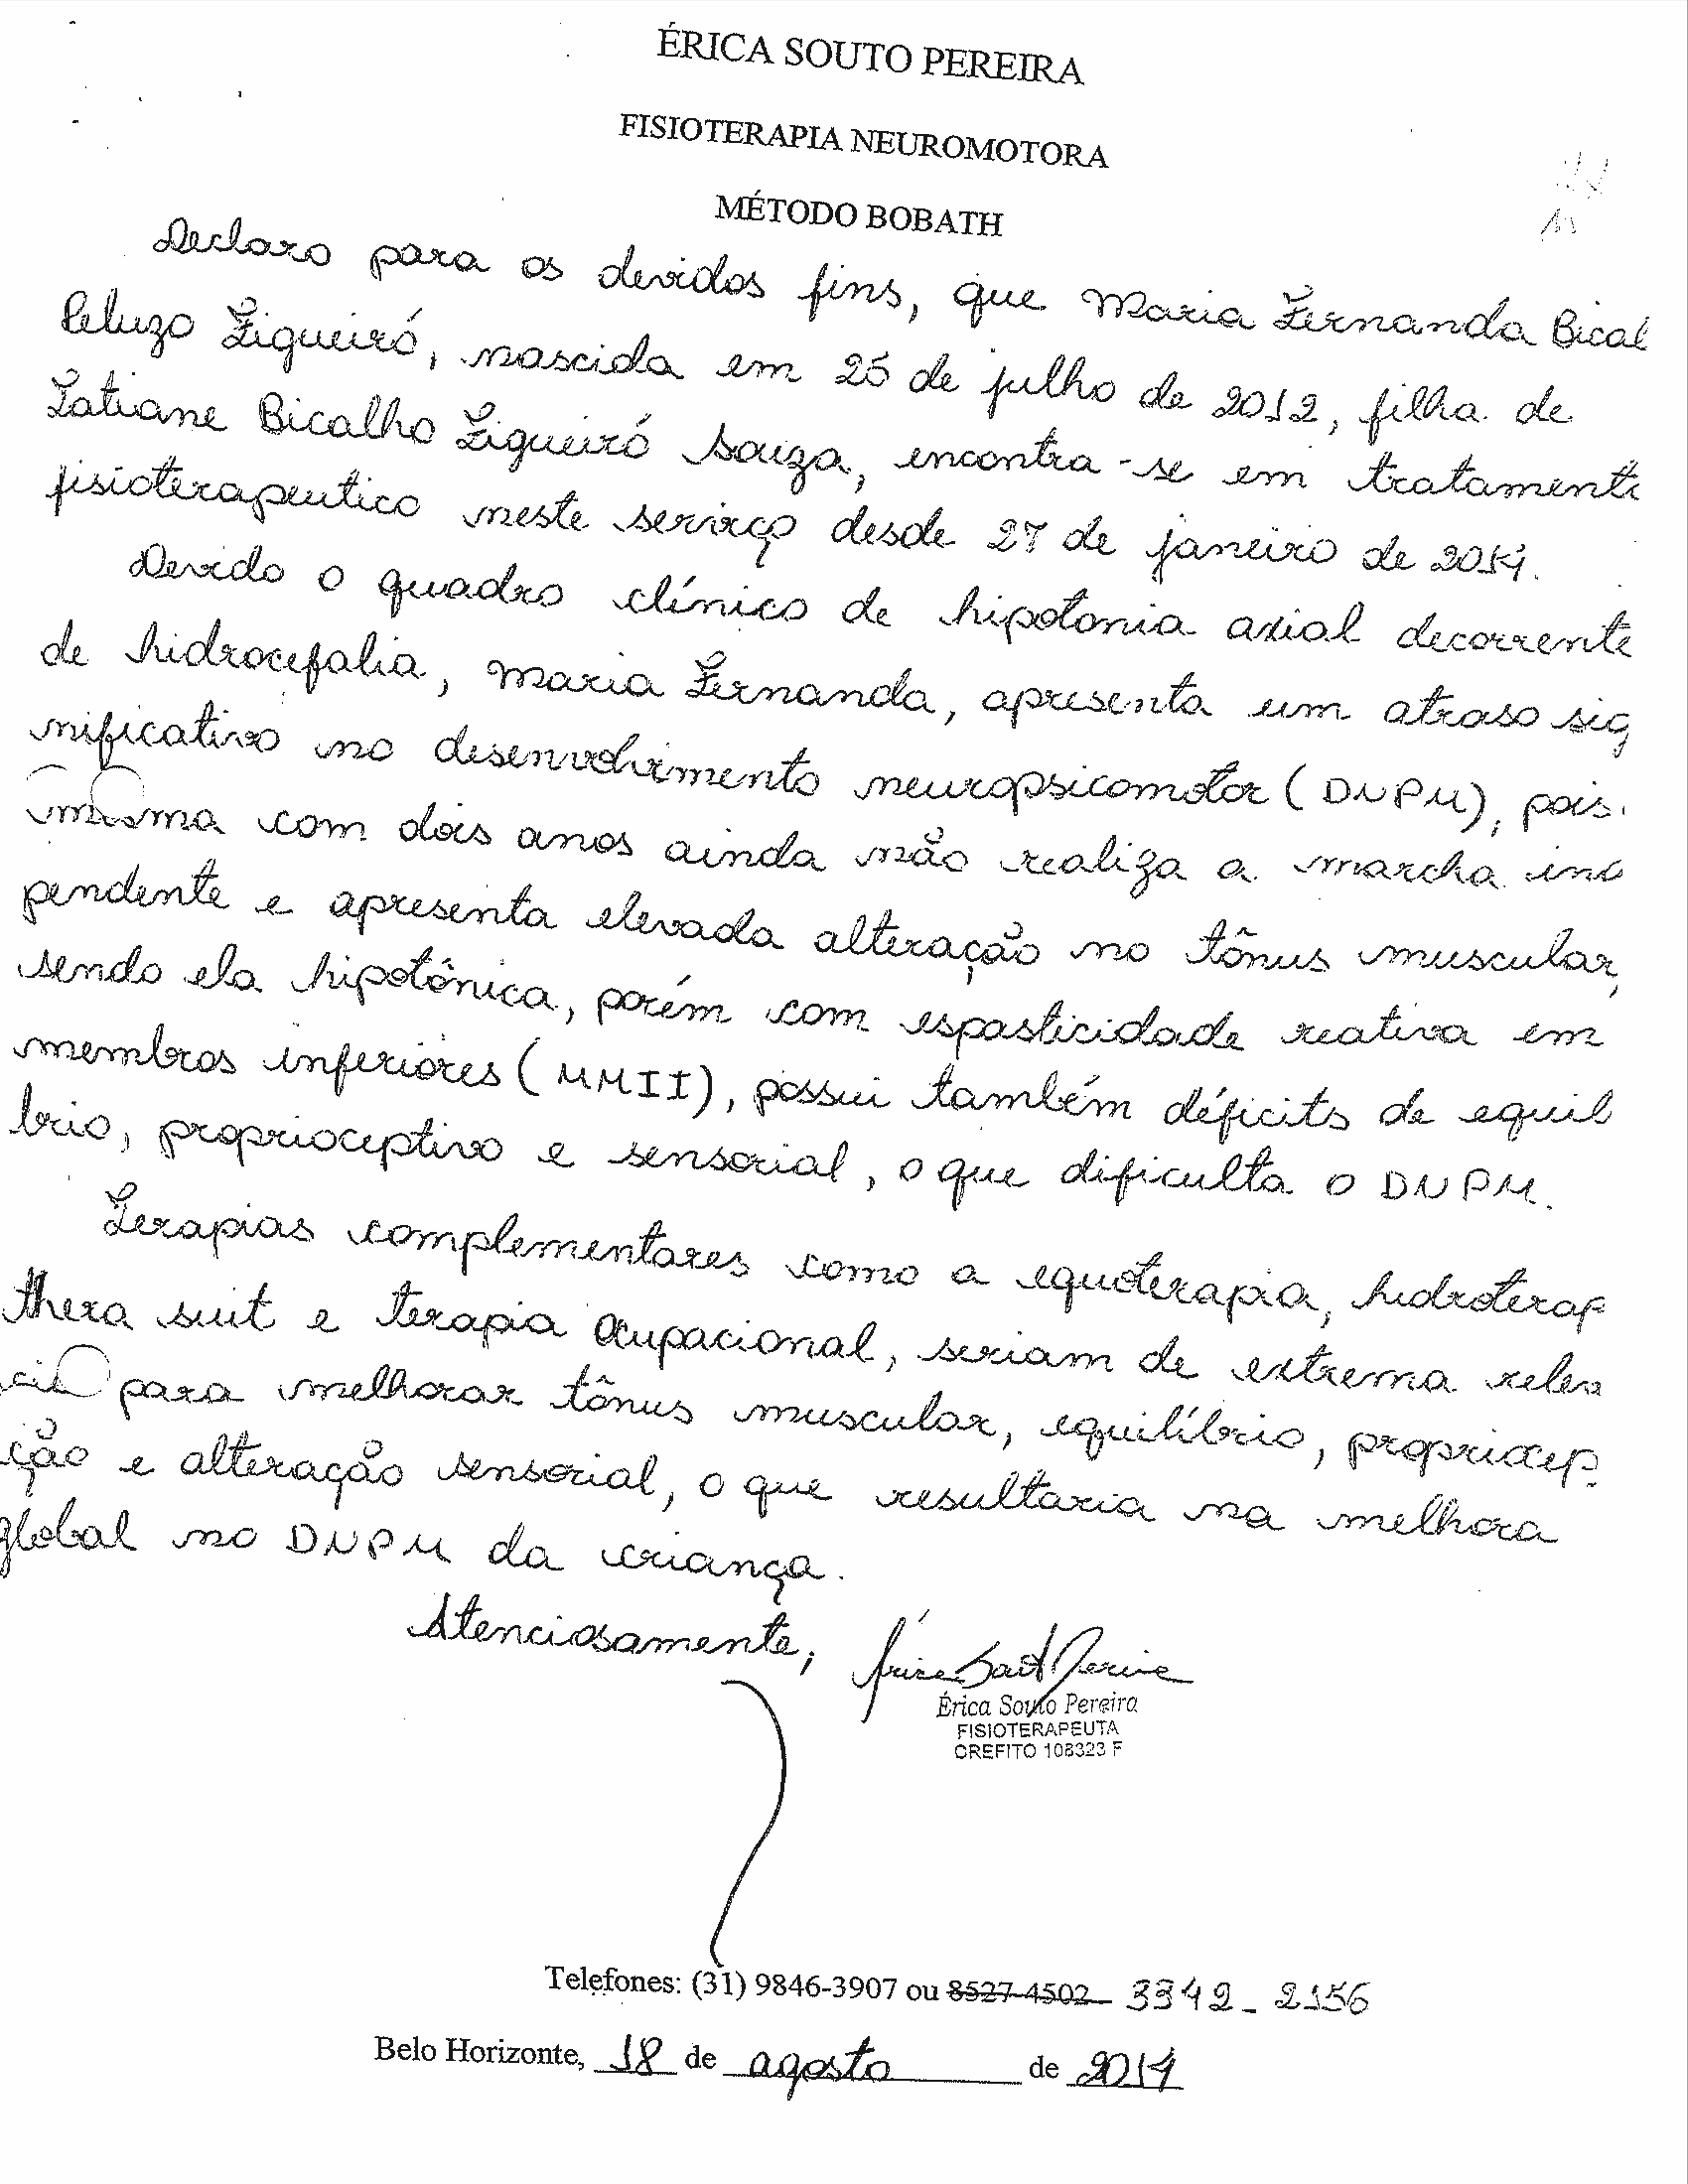 ÉRICA SOUTO PEREIRA
FISIOTERAPIA NEUROMOTORA
MÉTODO BOBATH
Declaro para os devidos fins, que Maria Fernanda Bical
Peluzo Ziqueiró, nascida em 25 de julho de 2012, filha de
Tatiane Bicalho Ziqueiró Souza, encontra-se em tratament
fisioterapeutico neste serviço desde 27 de janeiro de 2014.
Devido o quadro clínico de hipotonia axial decorrente
de hidrocefalia, Maria Fernanda, apresenta um atraso sig
nificativo no desenvolvimento neuropsicomotor (DNPM), pois
mesma com dois anos ainda não realiza a marcha ind
pendente e apresenta elevada alteração no tônus muscular,
sendo ela hipotônica, porém com espasticidade reativa em
membros inferiores (MMII), possui também déficits de equil
brio, proprioceptivo e sensorial, o que dificulta o DNPM.
Terapias complementares como a equoterapia, hidroterap
thera suit e terapia ocupacional, seriam de extrema relev
cia para melhorar tônus muscular, equilíbrio, propriocep-
ção e alteração sensorial, o que resultaria na melhora
global no DNPM da criança.
Atenciosamente,
Érica Souto Pereira
FISIOTERAPEUTA
CREFITO 108323 F
Telefones: (31) 9846-3907 ou 8527-4502 3342-2156
Belo Horizonte, 18 de agosto de 2014